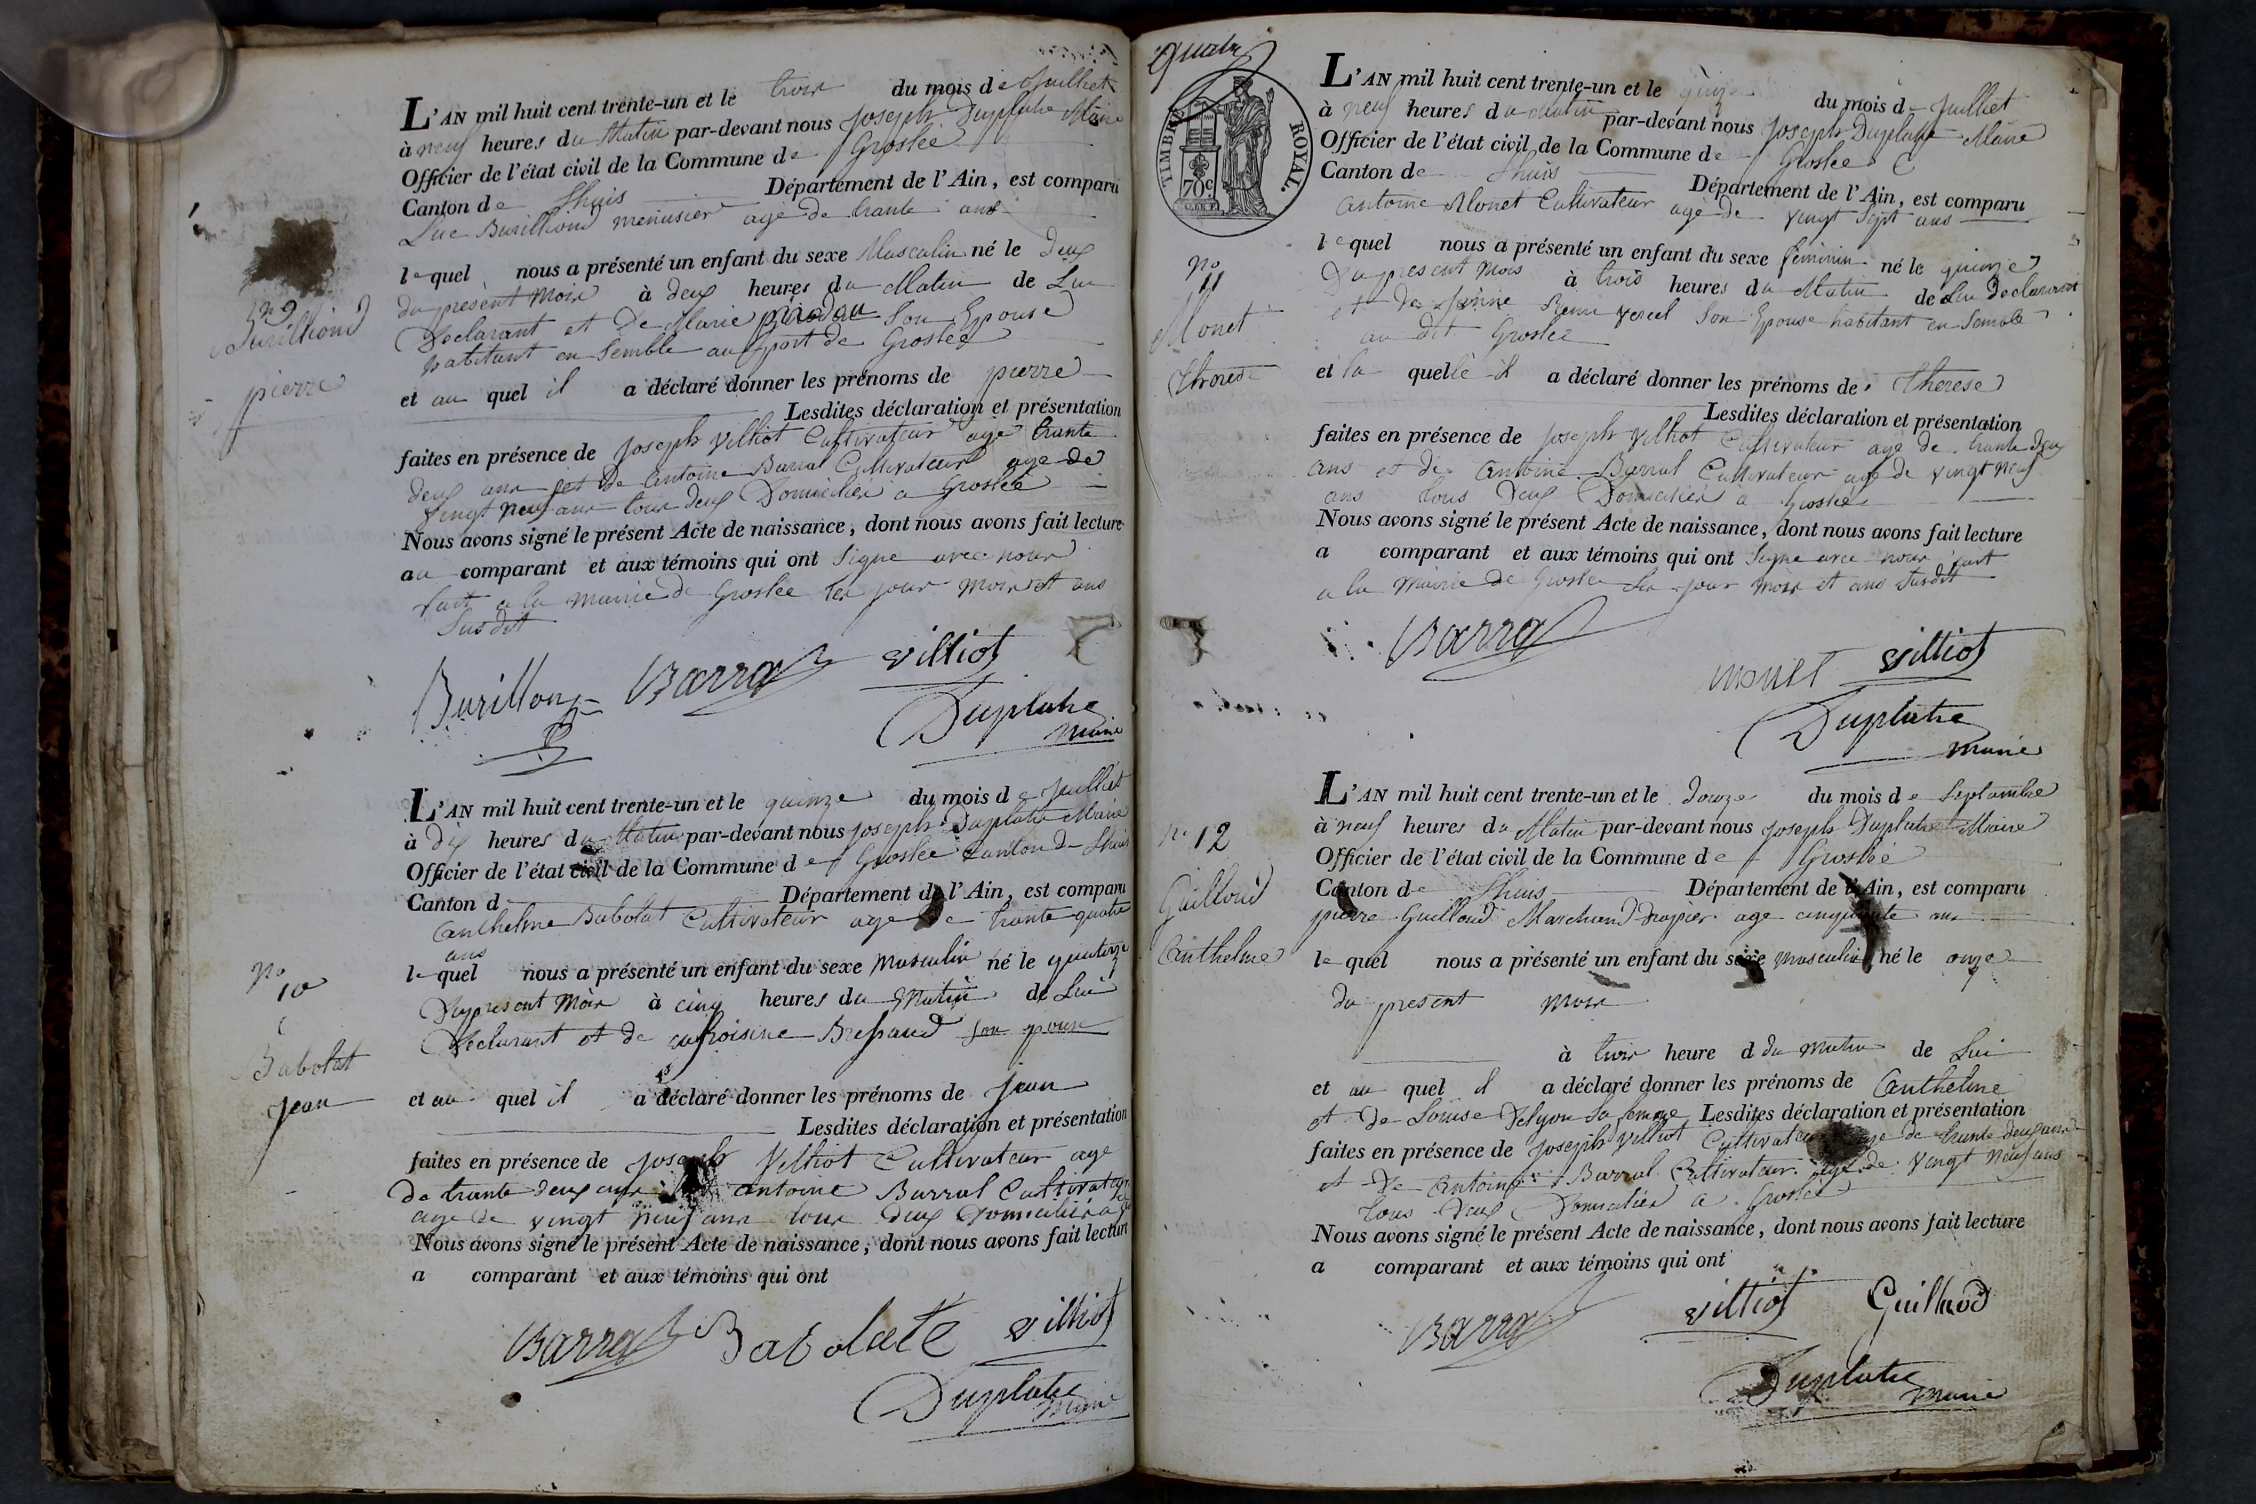 L'AN mil huit cent trente-un et le trois du mois de Juillet
à neuf heures du Matin par-devant nous Joseph Duplatre Maire
Officier de l'état civil de la Commune de Groslée
Canton de Lhuis Département de l'Ain, est comparu
Luc Burillion menusier agé de trante ans
lequel nous a présenté un enfant du sexe Masculin né le deux
du present Mois à deux heures du Matin de Lui
Declarant et De Marie son Epouse
habitant en semble au port de Groslée
et au quel il a déclaré donner les prénoms de pierre
Lesdites déclaration et présentation
faites en présence de Joseph Villiot Cultivateur agé trante
deux ans et De Antoine Barral Cultivateur age de
vingt neuf ans tous deux Domiciliés a Groslée
Nous avons signé le présent Acte de naissance, dont nous avons fait lecture
au comparant et aux témoins qui ont signe avec nous
fait a la mairie de Groslée les jour mois et ans
susdit
Burillon Barral villiot
Duplatre
maire
n° 9
Burilliond
pierre
L'AN mil huit cent trente-un et le quinze du mois de juillet
à dix heures du Matin par-devant nous joseph Duplatre Maire
Officier de l'état civil de la Commune de Groslée canton de Lhuis
Canton d Département de l'Ain, est comparu
Anthelme Babolat Cultivateur age de trante quatre
ans
lequel nous a présenté un enfant du sexe masculin né le quatorze
Du present Mois à cinq heures du Matin de Lui
Declarant et de Bressand son epouse
et au quel il a déclaré donner les prénoms de jean
Lesdites déclaration et présentation
faites en présence de joseph Villiot Cultivateur age
de trante deux ans antoine Barral Cultivateur
age de vingt neuf ans tous deux Domiciliés a
Nous avons signé le présent Acte de naissance, dont nous avons fait lecture
a comparant et aux témoins qui ont
Barral Babolat villiot
Duplatre
maire
n°
10
Babolat
jean
quatre
TIMBRE ROYAL.
70c
L'AN mil huit cent trente-un et le quinze du mois de Juillet
à neuf heures du matin par-devant nous Joseph Duplatre Maire
Officier de l'état civil de la Commune de Groslée
Canton de Lhuis Département de l'Ain, est comparu
antoine Monet Cultivateur agé de vingt sept ans
lequel nous a présenté un enfant du sexe féminin né le quinze
Du present Mois à trois heures du Matin de Lui Declarant
et de Vercel son Epouse habitant en semble
au dit Groslée
et la quelle il a déclaré donner les prénoms de Therese
Lesdites déclaration et présentation
faites en présence de joseph Villiot Cultivateur age de trante deux
ans et de Antoine Barral Cultivateur age de vingt neuf
ans tous Deux Domiciliés a Groslée
Nous avons signé le présent Acte de naissance, dont nous avons fait lecture
a comparant et aux témoins qui ont signe avec nous fait
a la mairie de Groslée les jour mois et ans susdit
Barral
monet villiot
Duplatre
maire
n°
11
Monet
Therese
L'AN mil huit cent trente-un et le douze du mois de septambre
à neuf heures du Matin par-devant nous joseph Duplatre Maire
Officier de l'état civil de la Commune de Groslée
Canton de Lhuis Département de l'Ain, est comparu
pierre Guilloud Marchand Drapier age cinquante ans
lequel nous a présenté un enfant du sexe masculin né le onze
du present mois
à trois heure d du matin de Lui
et au quel il a déclaré donner les prénoms de Anthelme
et de Louise sa femme Lesdites déclaration et présentation
faites en présence de joseph Villiot Cultivateur age de trante deux ans
et De Antoine Barral Cultivateur age de vingt neuf ans
tous deux Domiciliés a Groslée
Nous avons signé le présent Acte de naissance, dont nous avons fait lecture
a comparant et aux témoins qui ont
Barral villiot Guilloud
Duplatre
maire
n° 12
Guilloud
Anthelme